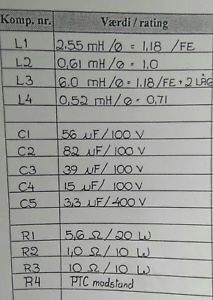 Komp. nr. Værdi / rating
L1 2.55 mH/ø = 1,18 /FE
L2 0,61 mH/ø = 1.0
L3 6.0 mH/ø = 1.18/FE + 2 LÅG
L4 0,52 mH/ø = 0,71
C1 56 µF/100 V
C2 82 µF/100 V
C3 39 µF/100 V
C4 15 µF/100 V
C5 3,3 µF/400 V
R1 5,6 Ω/20 W
R2 1,0 Ω/10 W
R3 10 Ω/10 W
R4 PTC modstand